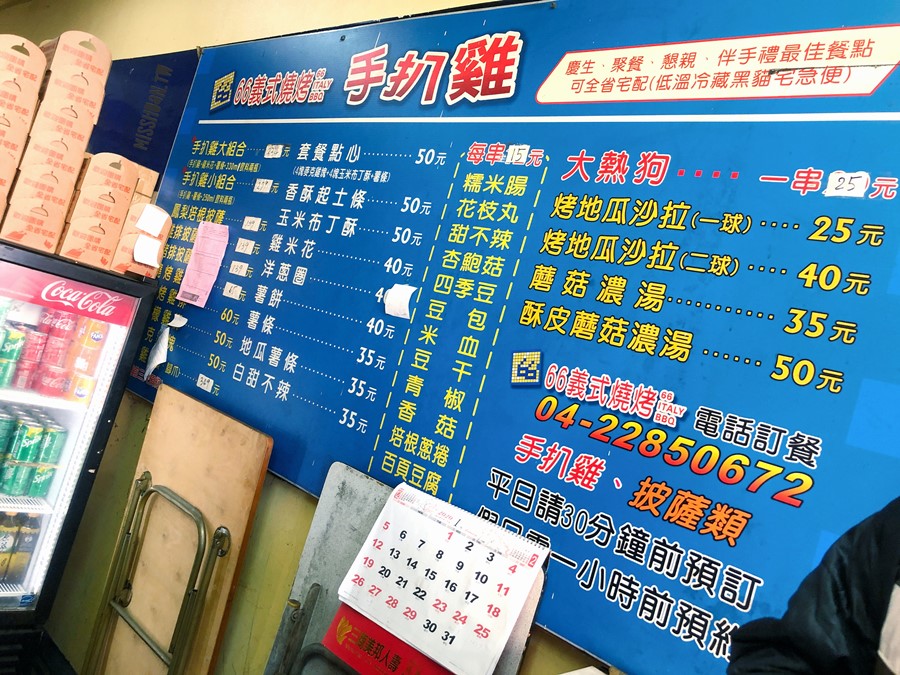 66義式燒烤 66 ITALY BBQ 手扒雞
慶生、聚餐、懇親、伴手禮最佳餐點
可全省宅配(低溫冷藏黑貓宅急便)
MISSHAOL.TW
手扒雞大組合
手扒雞小組合
鳳梨培根披薩
60元
50元
50元
套餐點心 50元
香酥起士條 50元
玉米布丁酥 50元
雞米花 40元
洋蔥圈
薯餅 40元
薯條 35元
地瓜薯條 35元
白甜不辣 35元
每串15元
糯米腸
花枝丸
甜不辣
杏鮑菇
四季豆
豆包
米血
豆干
青椒
香菇
培根蔥捲
百頁豆腐
大熱狗 一串25元
烤地瓜沙拉(一球) 25元
烤地瓜沙拉(二球) 40元
蘑菇濃湯 35元
酥皮蘑菇濃湯 50元
66義式燒烤 66 ITALY BBQ 電話訂餐
04-22850672
手扒雞、披薩類
平日請30分鐘前預訂
一小時前預約
Coca-Cola
Sprite
1 2 3 4
5 6 7 8 9 10 11
12 13 14 15 16 17 18
19 20 21 22 23 24 25
26 27 28 29 30 31